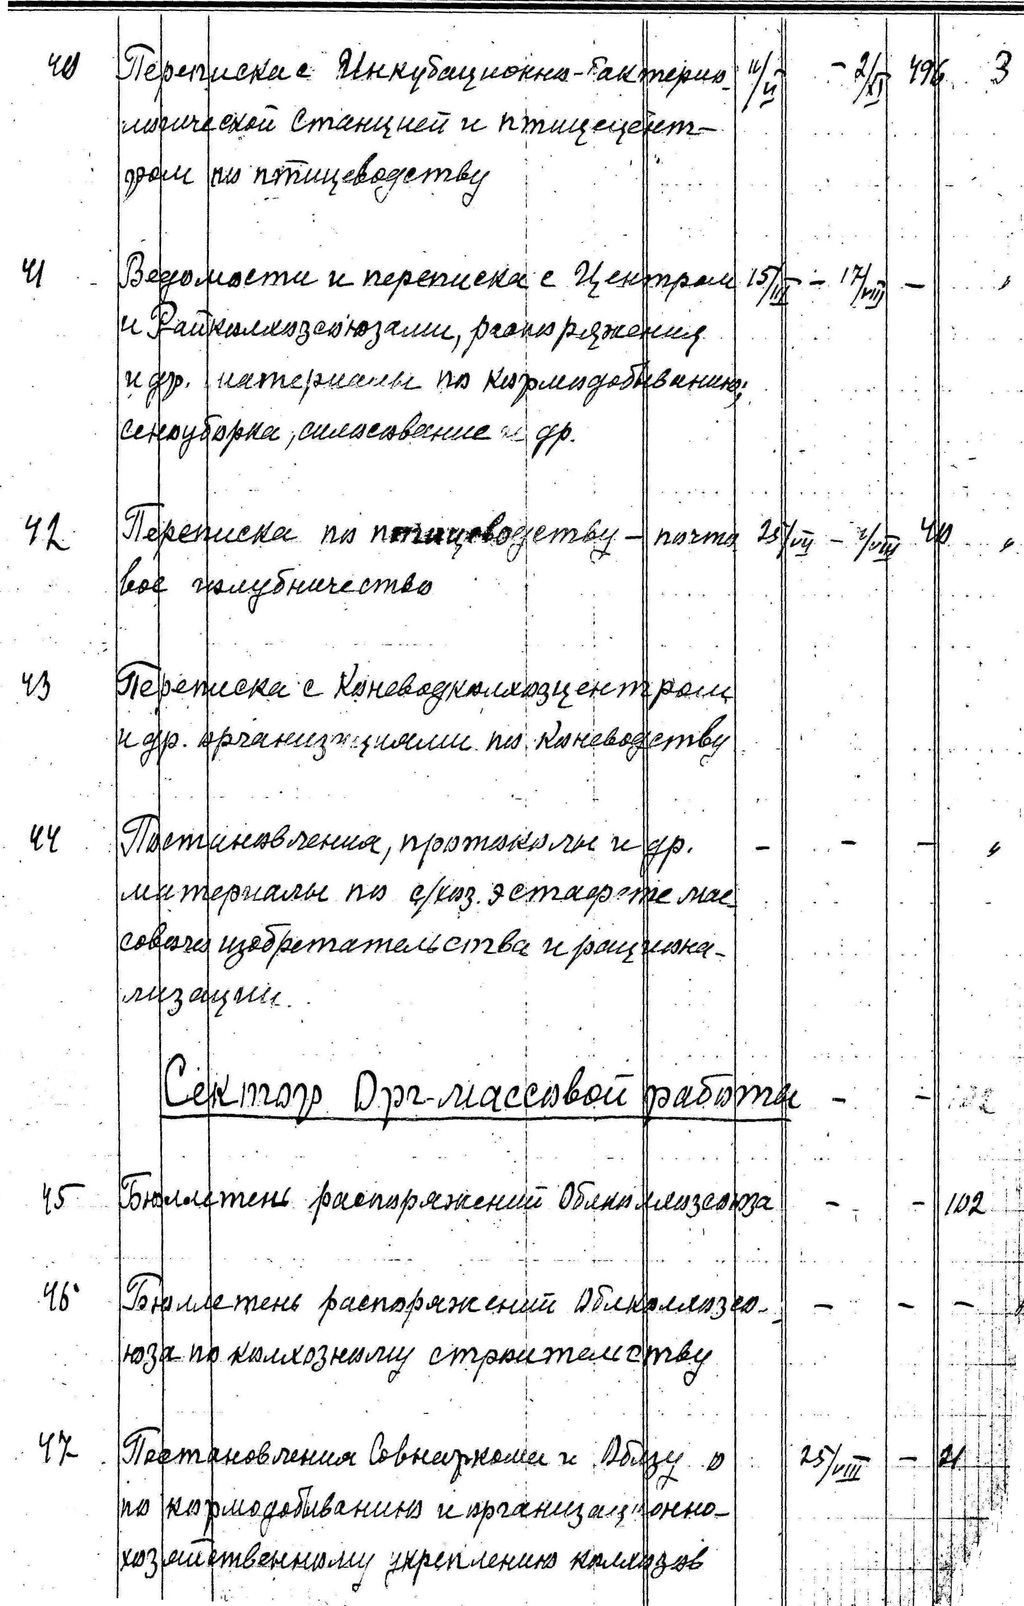 40 Переписка с Инкубационно-бактерио- 11/VI - 2/XI 496 3
логической станцией и птицецент-
ром по птицеводству
41 Ведомости и переписка с Центром 15/III - 17/VIII - "
и Райколхозсоюзами, распоряжения
и др. материалы по кормодобыванию;
сеноуборка, силосование и др.
42 Переписка по птицеводству - почто 25/VII - /VIII 40 "
вое голубничество
43 Переписка с Коневодколхозцентром
и др. организациями по коневодству
44 Постановления, протоколы и др. - - - "
материалы по с/хоз. эстафете мас-
сового изобретательства и рациона-
лизации.
Сектор Орг-массовой работы - - 102
45 Бюллетень распоряжений Облколхозсоюза - - 102
46 Бюллетень распоряжений Облколхозсо- - - -
юза по колхозному строительству
47 Постановления Совнаркома и Облзу о 25/VIII - 21
по кормодобыванию и организационно-
хозяйственному укреплению колхозов